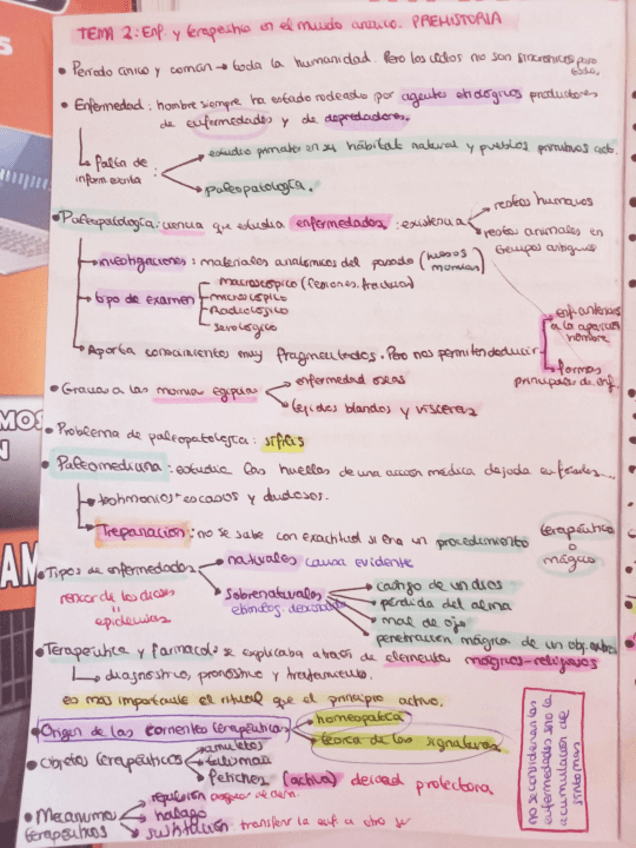 TEMA 2: Enf. y terapéutica en el mundo arcaico. PREHISTORIA
• Periodo único y común → toda la humanidad. Pero los cambios no son sincrónicos para todos.
• Enfermedad: hombre siempre ha estado rodeado por agentes etiológicos productores
de enfermedades y de depredadores.
falta de inform escrita:
estudio primates en su hábitat natural y pueblos primitivos act.
paleopatología.
• Paleopatología: ciencia que estudia enfermedades: existencia
restos humanos
restos animales en tiempos antiguos
investigaciones: materiales anatómicos del pasado (huesos momias)
tipo de examen
macroscópico (lesiones, fracturas)
microscópico
Radiológico
serológico
Aporta conocimientos muy fragmentados. Pero nos permiten deducir
enf. anteriores a la aparición hombre
formas principales de enf.
• Gracias a las momias egipcias
enfermedad oseas
tejidos blandos y vísceras
• Problema de paleopatología: sífilis
• Paleomedicina: estudia las huellas de una acción médica dejada en fósiles...
testimonios escasos y dudosos.
Trepanación: no se sabe con exactitud si era un procedimiento
terapéutico
o
mágico
• Tipos de enfermedades
naturales causa evidente
sobrenaturales
etiolog. desconocida
castigo de un dios
pérdida del alma
mal de ojo
penetración mágica de un obj.
rencor de los dioses
=
epidemias
• Terapéutica y farmacol: se explicaba a través de elementos mágicos-religiosos
diagnóstico, pronóstico y tratamiento.
es más importante el ritual que el principio activo.
• Origen de las corrientes terapéuticas
homeopatía
teoría de las signaturas
• Objetos terapéuticos
amuletos
talismán
fetiches (activa) deidad protectora
• Mecanismos terapéuticos
repulsión
halago
sustitución: transferir la enf a otro ser
no se consideran las
enfermedades sino la
acumulación de
síntomas